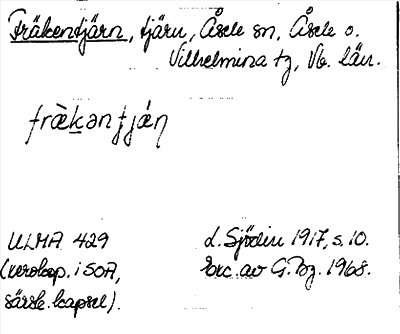 Fräkentjärn, tjärn, Åsele sn, Åsele o.
Vilhelmina tg, Vb. län.
fræ̀kəntjǽṇ
ULMA 429
(xerokop. i SOA,
särsk. kapsel).
L. Sjödin 1917, s. 10.
Exc. av G. Bg. 1968.